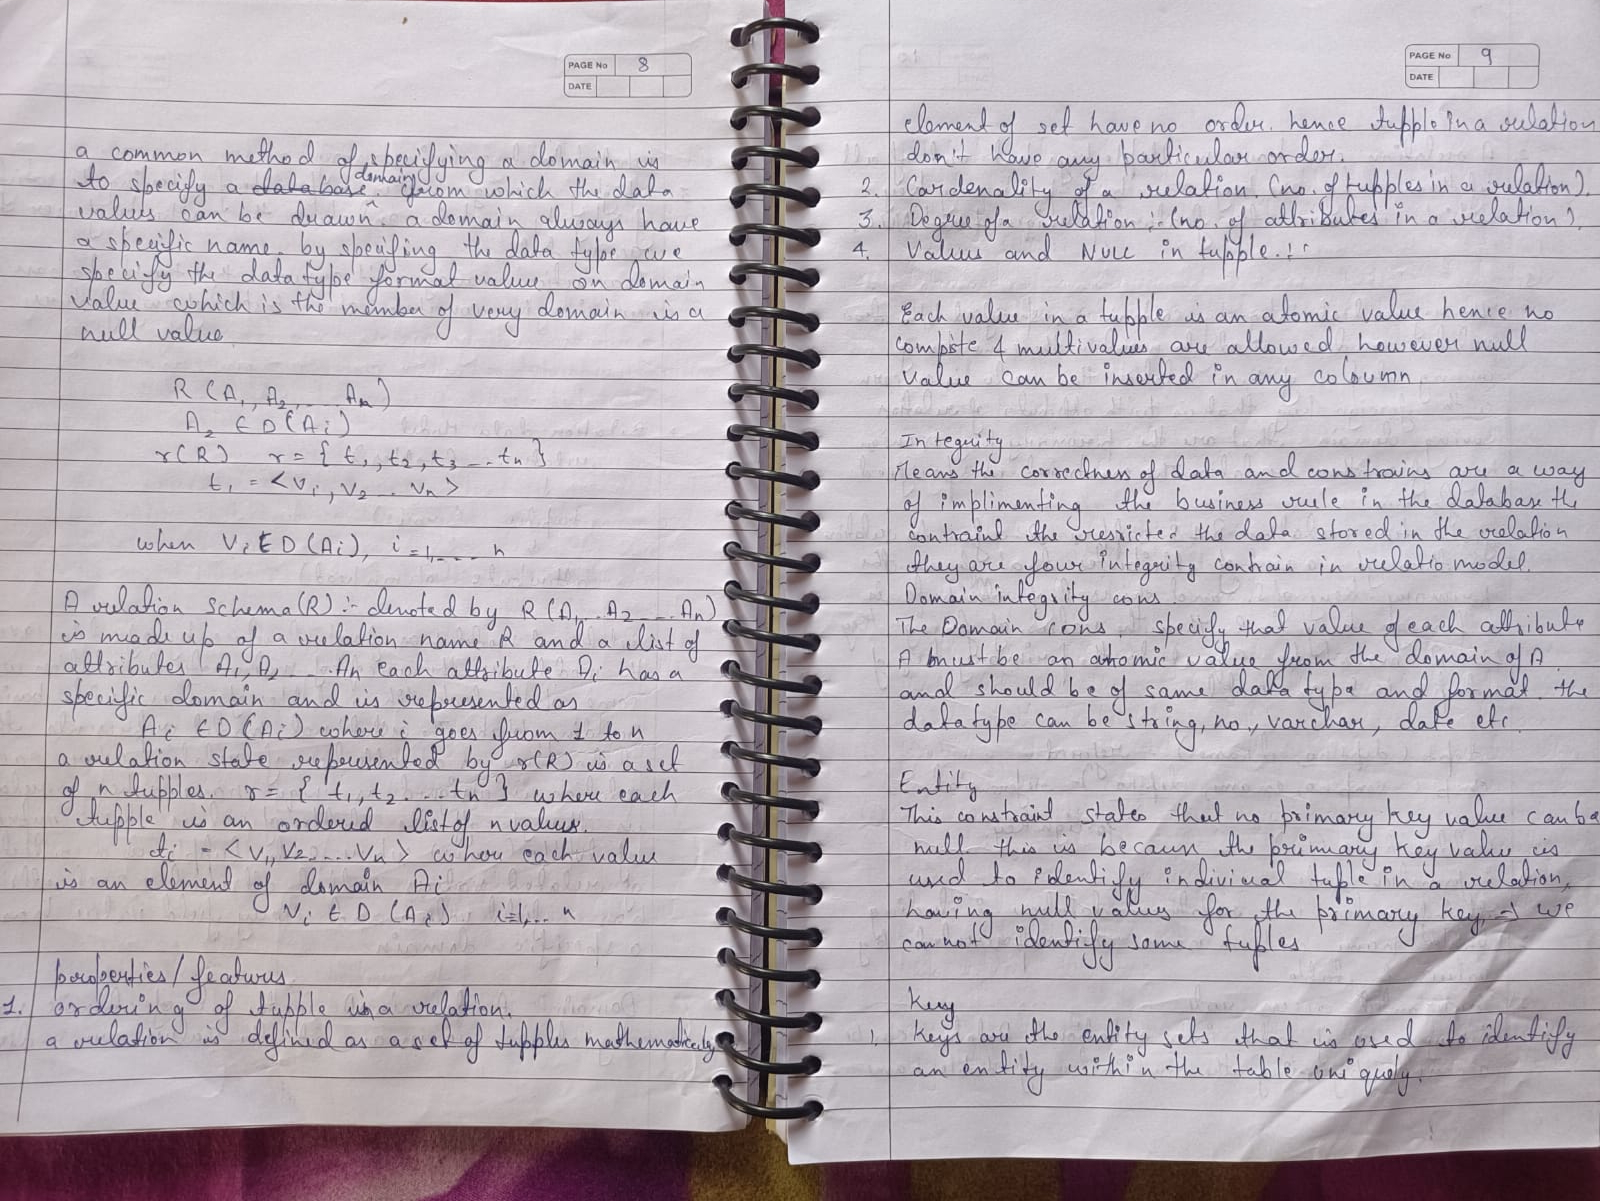 PAGE No 8
DATE
a common method of specifying a domain is
to specify a database domain from which the data
values can be drawn. a domain always have
a specific name. by specifing the data type we
specify the datatype format value on domain
value which is the member of very domain is a
null value
R (A1, A2, ... An)
A2 ∈ D(Ai)
r(R) r = { t1, t2, t3 ... tn }
t1 = <v1, v2 ... vn>
when Vi ∈ D(Ai), i = 1, .... n
A relation schema (R) :- denoted by R (A1, A2 ... An)
is made up of a relation name R and a list of
attributes A1, A2 .... An each attribute Ai has a
specific domain and is represented as
Ai ∈ D(Ai) where i goes from 1 to n
a relation state represented by r(R) is a set
of n tupples. r = { t1, t2 ... tn } where each
tupple is an ordered list of n values.
ti = <v1, v2 .... vn> where each value
is an element of domain Ai
Vi ∈ D (Ai) i=1,.. n
properties/features.
1. ordering of tupple in a relation.
a relation is defined as a set of tupples mathematicaly
PAGE No 9
DATE
element of set have no order. hence tupple in a relation
don't have any particular order.
2. Cardenality of a relation. (no. of tupples in a relation).
3. Degree of a relation :- (no. of attributes in a relation).
4. Values and NULL in tupple.:-
Each value in a tupple is an atomic value hence no
compsite & multivalues are allowed however null
value can be inserted in any coloumn
Integrity
Means the correctness of data and constrains are a way
of implimenting the business rule in the database the
contraint the resricted the data stored in the relation
they are four integrity contrain in relatio model.
Domain integrity cons.
The Domain cons. specify that value of each attribute
A must be an atomic value from the domain of A.
and should be of same data type and format. the
datatype can be string, no., varchar, date etc.
Entity
This constraint states that no primary key value can be
null this is becaun the primary key value is
used to identify indiviual tuple in a relation,
having null values for the primary key → we
can not identify some tuples
Key
1. Keys are the entity sets that is used to identify
an entity within the table uniquely.